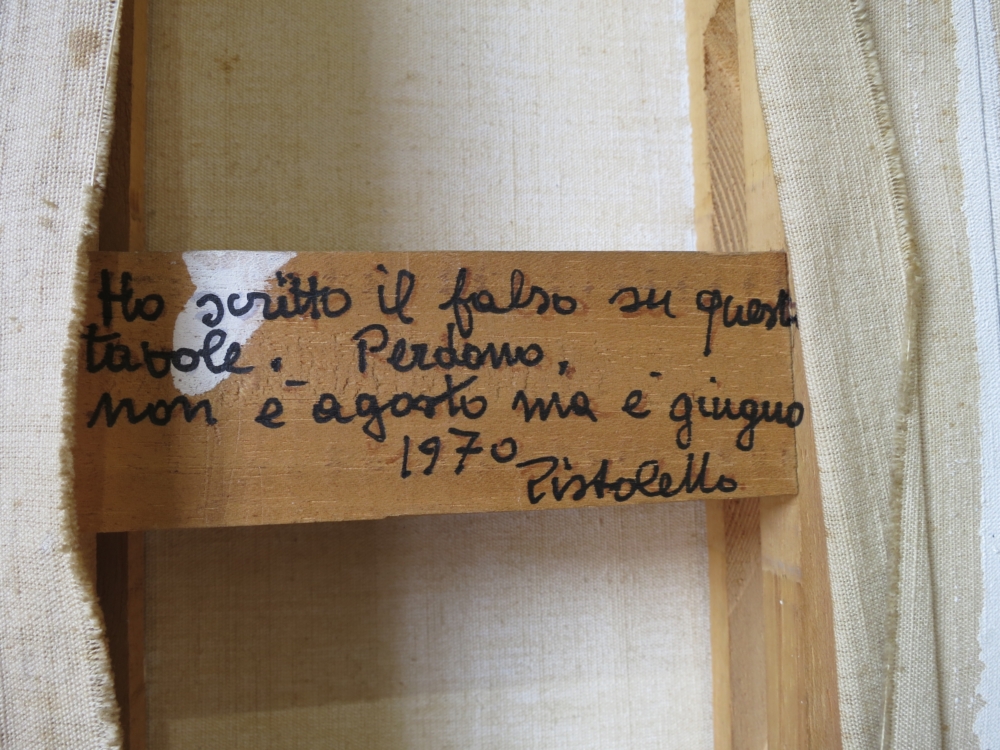 Ho scritto il falso su queste
tavole. Perdono,
non è agosto ma è giugno
1970
Pistoletto